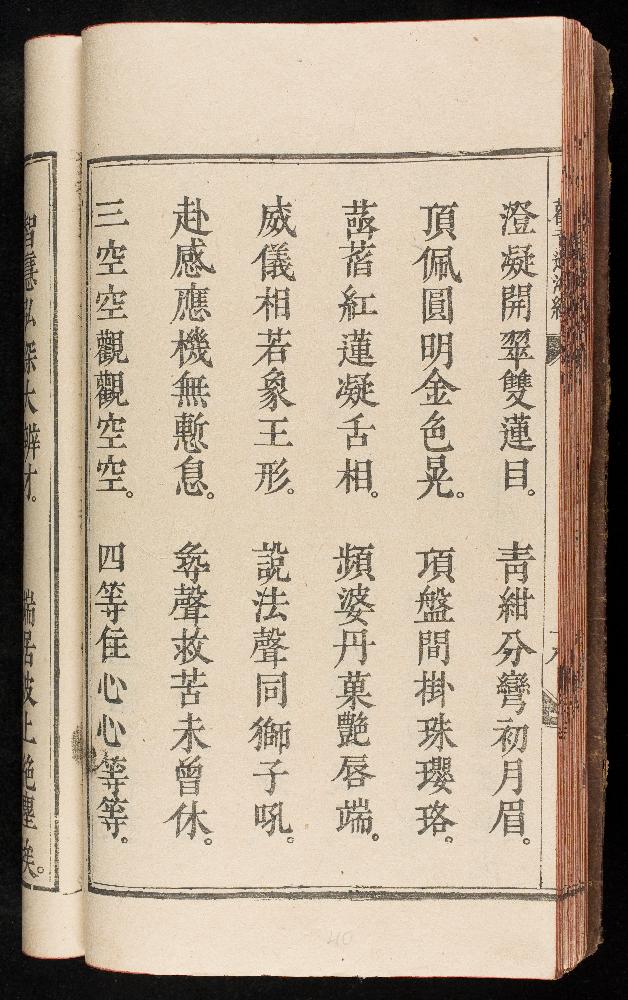 澄凝開翠雙蓮目。 青紺分彎初月眉。
頂佩圓明金色晃。 項盤間掛珠瓔珞。
菡萏紅蓮凝舌相。 頻婆丹菓艷唇端。
威儀相若象王形。 說法聲同獅子吼。
赴感應機無慙息。 尋聲救苦未曾休。
三空空觀觀空空。 四等住心心等等。
智慧弘深大辯才。 端居波上絶塵埃。